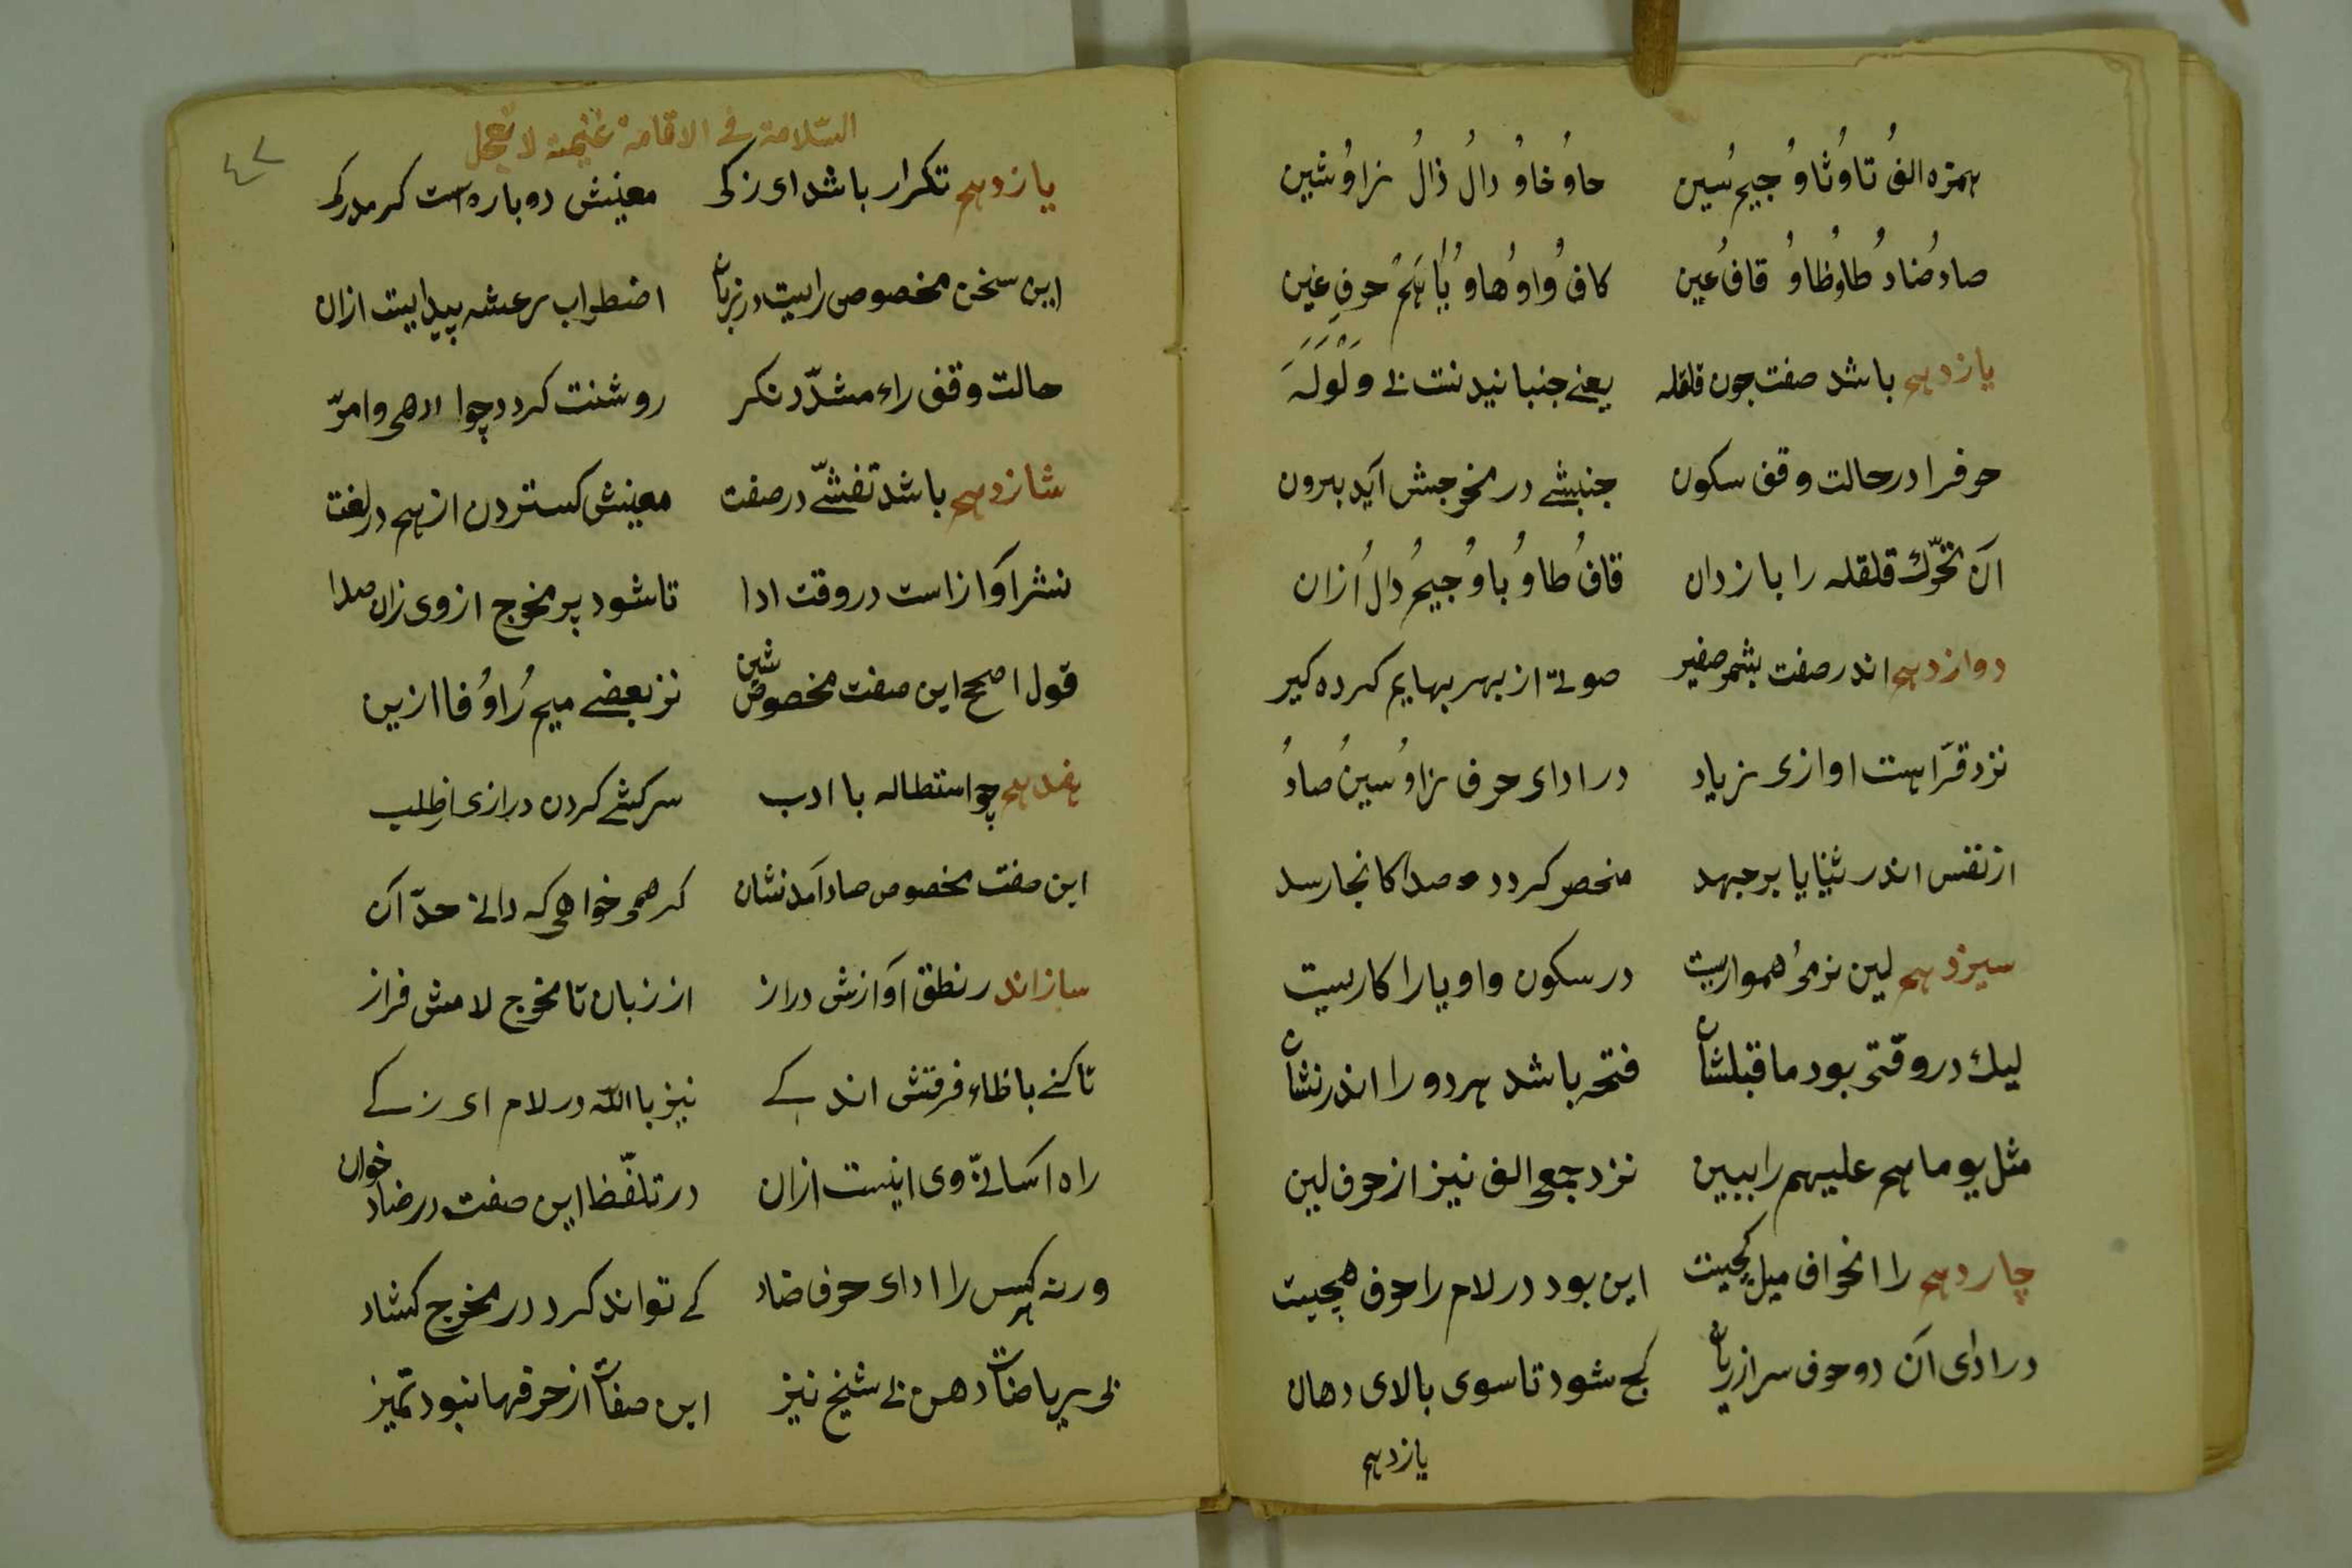 همزه الفُ تاوُ ثاوُ جیمُ سین حاوُ خاوُ دالُ ذالُ زاوُ شین
صادُ ضادُ طاوُ ظاوُ قافُ عین کافُ واوُ هاوُ یا هم حرفِ غین
یازدهم باشد صفت چون قلقله یعنے جنبانیدنت نے وَلْوَلَه
حرفرا در حالت وقف سکون جنبشے در مخرجش آید برون
آن تحرّک قلقله را باز دان قافُ طاوُ باوُ جیمُ دالُ ازان
دوازدهم اندر صفت بشمر صفیر صوتے از بهر بهایم کرده کیر
نزد قرّا هست اوازی زیاد در ادای حرف زاوُ سینُ صادُ
از نفس اندر ثنایا بر جهد منحصر کردد صدا کانجا رسد
سیزدهم لین نرمُ همواریست در سکون واو یا را کاریست
لیک در وقتی بود ما قبلشان فتحه باشد هر دو را اندر نشان
مثل یوما هم علیهم را ببین نزد جمعی الف نیز از حرف لین
چاردهم را انحراف میل کجیست این بود در لام را حرف همچیست
در ادای آن دو حرف سر از زبان کج شود تا سوی بالای دهان
یازدهم
٤٧
السّلامة فے الاقامة غنیمة لا تعجل
یازدهم تکرار باشد ای زکی معنیش دوباره است کر مدرکی
این سخن مخصوص راییت در زبان اضطراب رعشه پیداییت ازان
حالت وقف راء مشدّد نکر روشنت کردد چو ادهی وامرّ
شازدهم باشد تفشّے در صفت معنیش کستردن از هم در لغت
نشر آواز است در وقت ادا تا شود پر مخرج از وی زان صدا
قول اصح این صفت مخصوص شین نز بعضے میمُ راوُ فا ازین
هفدهم چو استطاله با ادب سرکشے کردن درازی از طلب
این صفت مخصوص ضاد آمد نشان کر همی خواهی که دانے حدّ آن
ساز اندر نطق آوازش دراز از زبان تا مخرج لامش فراز
تا کنے با ظاء فرقتش اندکے نیز با الله در لام ای زکے
راه آسانے وی اینست ازان در تلفّظ این صفت در ضاد خوان
ورنه هر کس را ادای حرف ضاد کے تواند کرد در مخرج کشاد
بی ریاضات دهن بے شیخ نیز این صفات از حرفها نبود تمیز